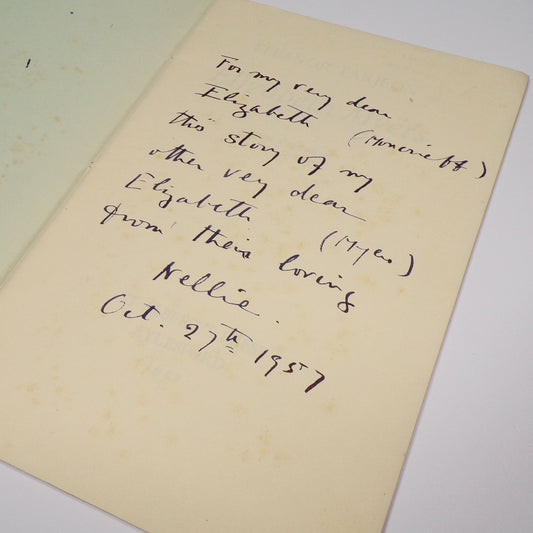 For my very dear
Elizabeth (Moncrieff)
this story of my
other very dear
Elizabeth (Myers)
from their loving
Nellie.
Oct. 27th 1957